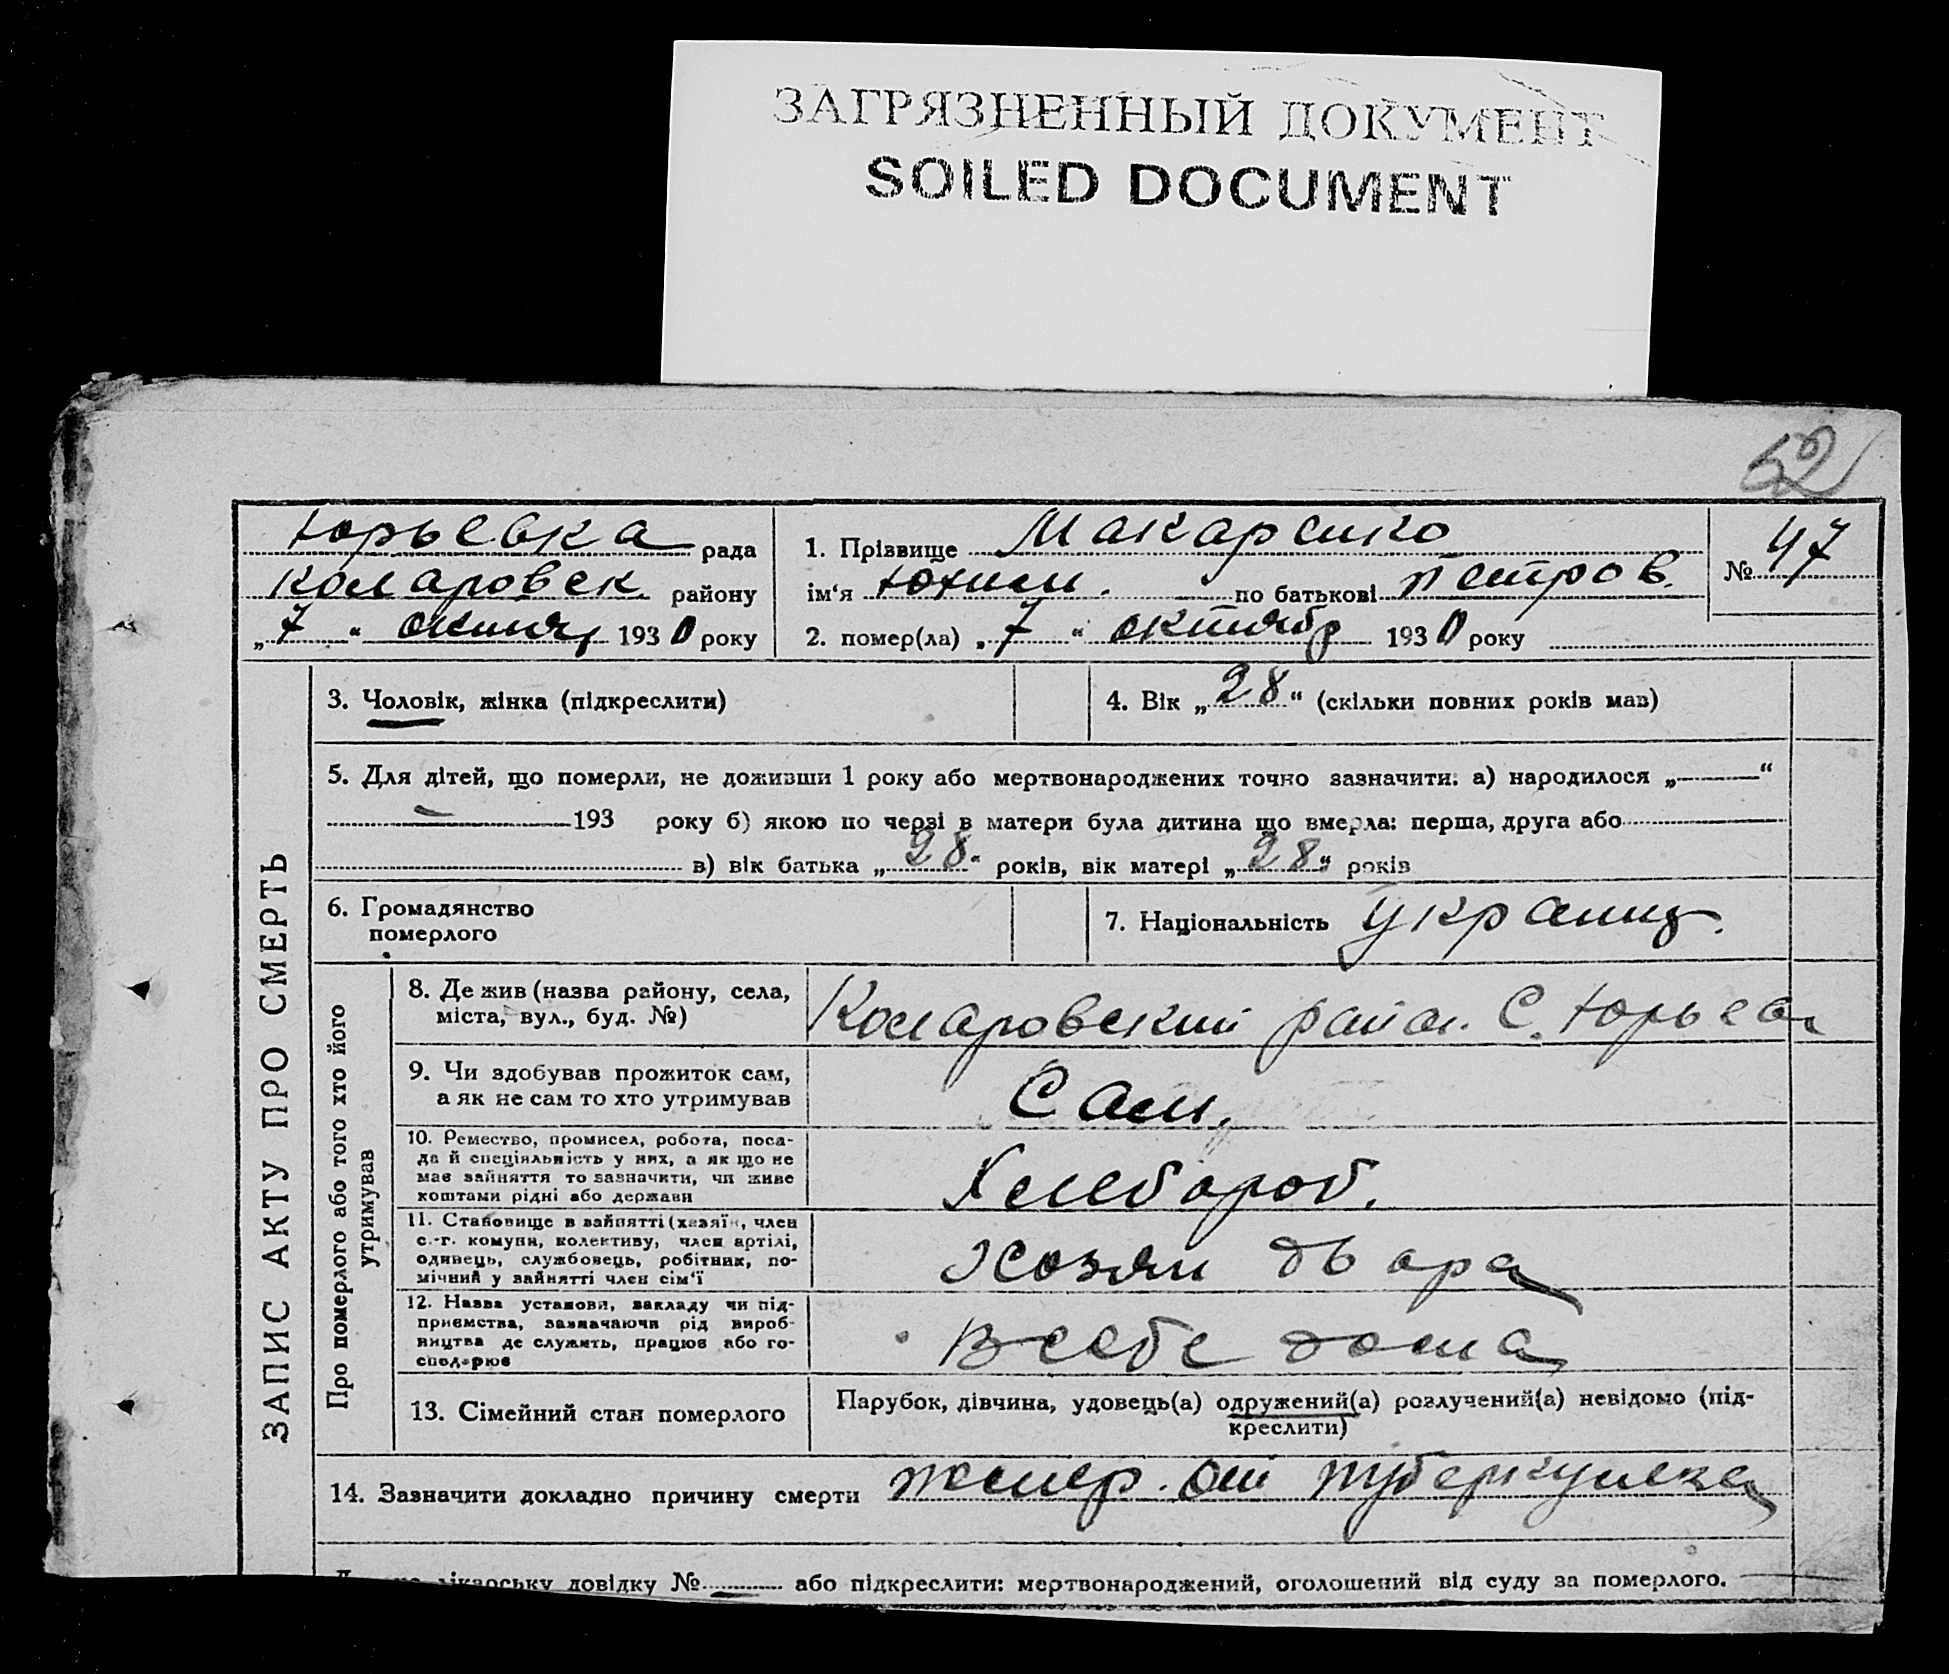 ЗАГРЯЗНЕННЫЙ ДОКУМЕНТ
SOILED DOCUMENT
52
Юрьевка рада
Комаровск. району
„7“ октяб 1930 року
1. Прізвище Макаренко
ім‘я Юхим. по батькові Петров.
2. помер(ла) „7“ октябр 1930 року
№ 47
ЗАПИС АКТУ ПРО СМЕРТЬ
3. Чоловік, жінка (підкреслити)
4. Вік „28“ (скільки повних років мав)
5. Для дітей, що померли, не доживши 1 року або мертвонароджених точно зазначити: а) народилося „—“
— 193 року б) якою по черзі в матери була дитина що вмерла: перша, друга або
в) вік батька „28“ років, вік матері „28“ років
6. Громадянство
померлого
7. Національність Украинц.
Про померлого або того хто його
утримував
8. Де жив (назва району, села,
міста, вул., буд. №)
Комаровский район. С. Юрьев
9. Чи здобував прожиток сам,
а як не сам то хто утримував
Сам.
10. Ремество, промисел, робота, поса-
да й спеціяльність у них, а як що не
має зайняття то зазначити, чи живе
коштами рідні або держави
Хлебороб.
11. Становище в зайнятті (хазяїн, член
с.-г. комуни, колективу, член артілі,
одинець, службовець, робітник, по-
мічний у зайнятті член сім‘ї
Хозяин двора
12. Назва установи, закладу чи під-
приємства, зазначаючи рід вироб-
ництва де служить, працює або го-
сподарює
В себе дома
13. Сімейний стан померлого
Парубок, дівчина, удовець(а) одружений(а) розлучений(а) невідомо (під-
креслити)
14. Зазначити докладно причину смерти помер. от туберкулеза
лікарську довідку № — або підкреслити: мертвонароджений, оголошений від суду за померлого.